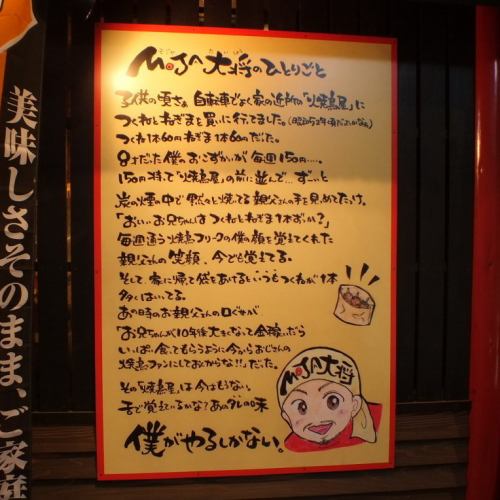 MOJA大将のひとりごと
子供の頃さぁ 自転車でよく家の近所の「焼鳥屋」に
つくねとねぎまを買いに行ってました。(昭和52年頃だったかなぁ)
つくね1本60円ねぎま1本60円だった。
8才だった僕のおこずかいが毎週150円…。
150円持って「焼鳥屋」の前に並んで…ずーっと
炭の煙の中で黙々と焼いてる親父さんの手を見めてたっけ。
「おぃぃお兄ちゃんはつくねとねぎま1本ずか?」
毎週通う焼鳥フリークの僕の顔を覚えてくれた
親父さんの笑顔、今でも覚えてる。
そして、家に帰って袋をあけるといつもつくねが1本
多くはいってる。
あの時のお親父さんの口ぐせが
「お兄ちゃんが10年後大きくなって金稼いだら
いっぱい食ってもらうように今からおじさんの
焼鳥ファンにしておくからな!!」だった。
その「焼鳥屋」は今はもうない。
舌で覚えているかな?あのタレの味
僕がやるしかない。
MOJA大将
美味しさそのまま、ご家庭